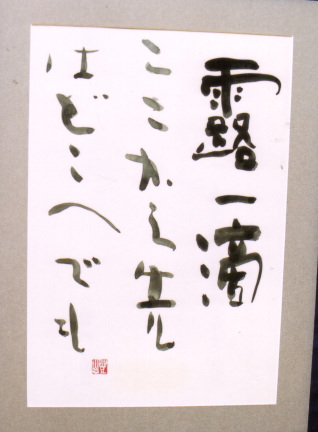 露一滴
ここから先
はどこへでも